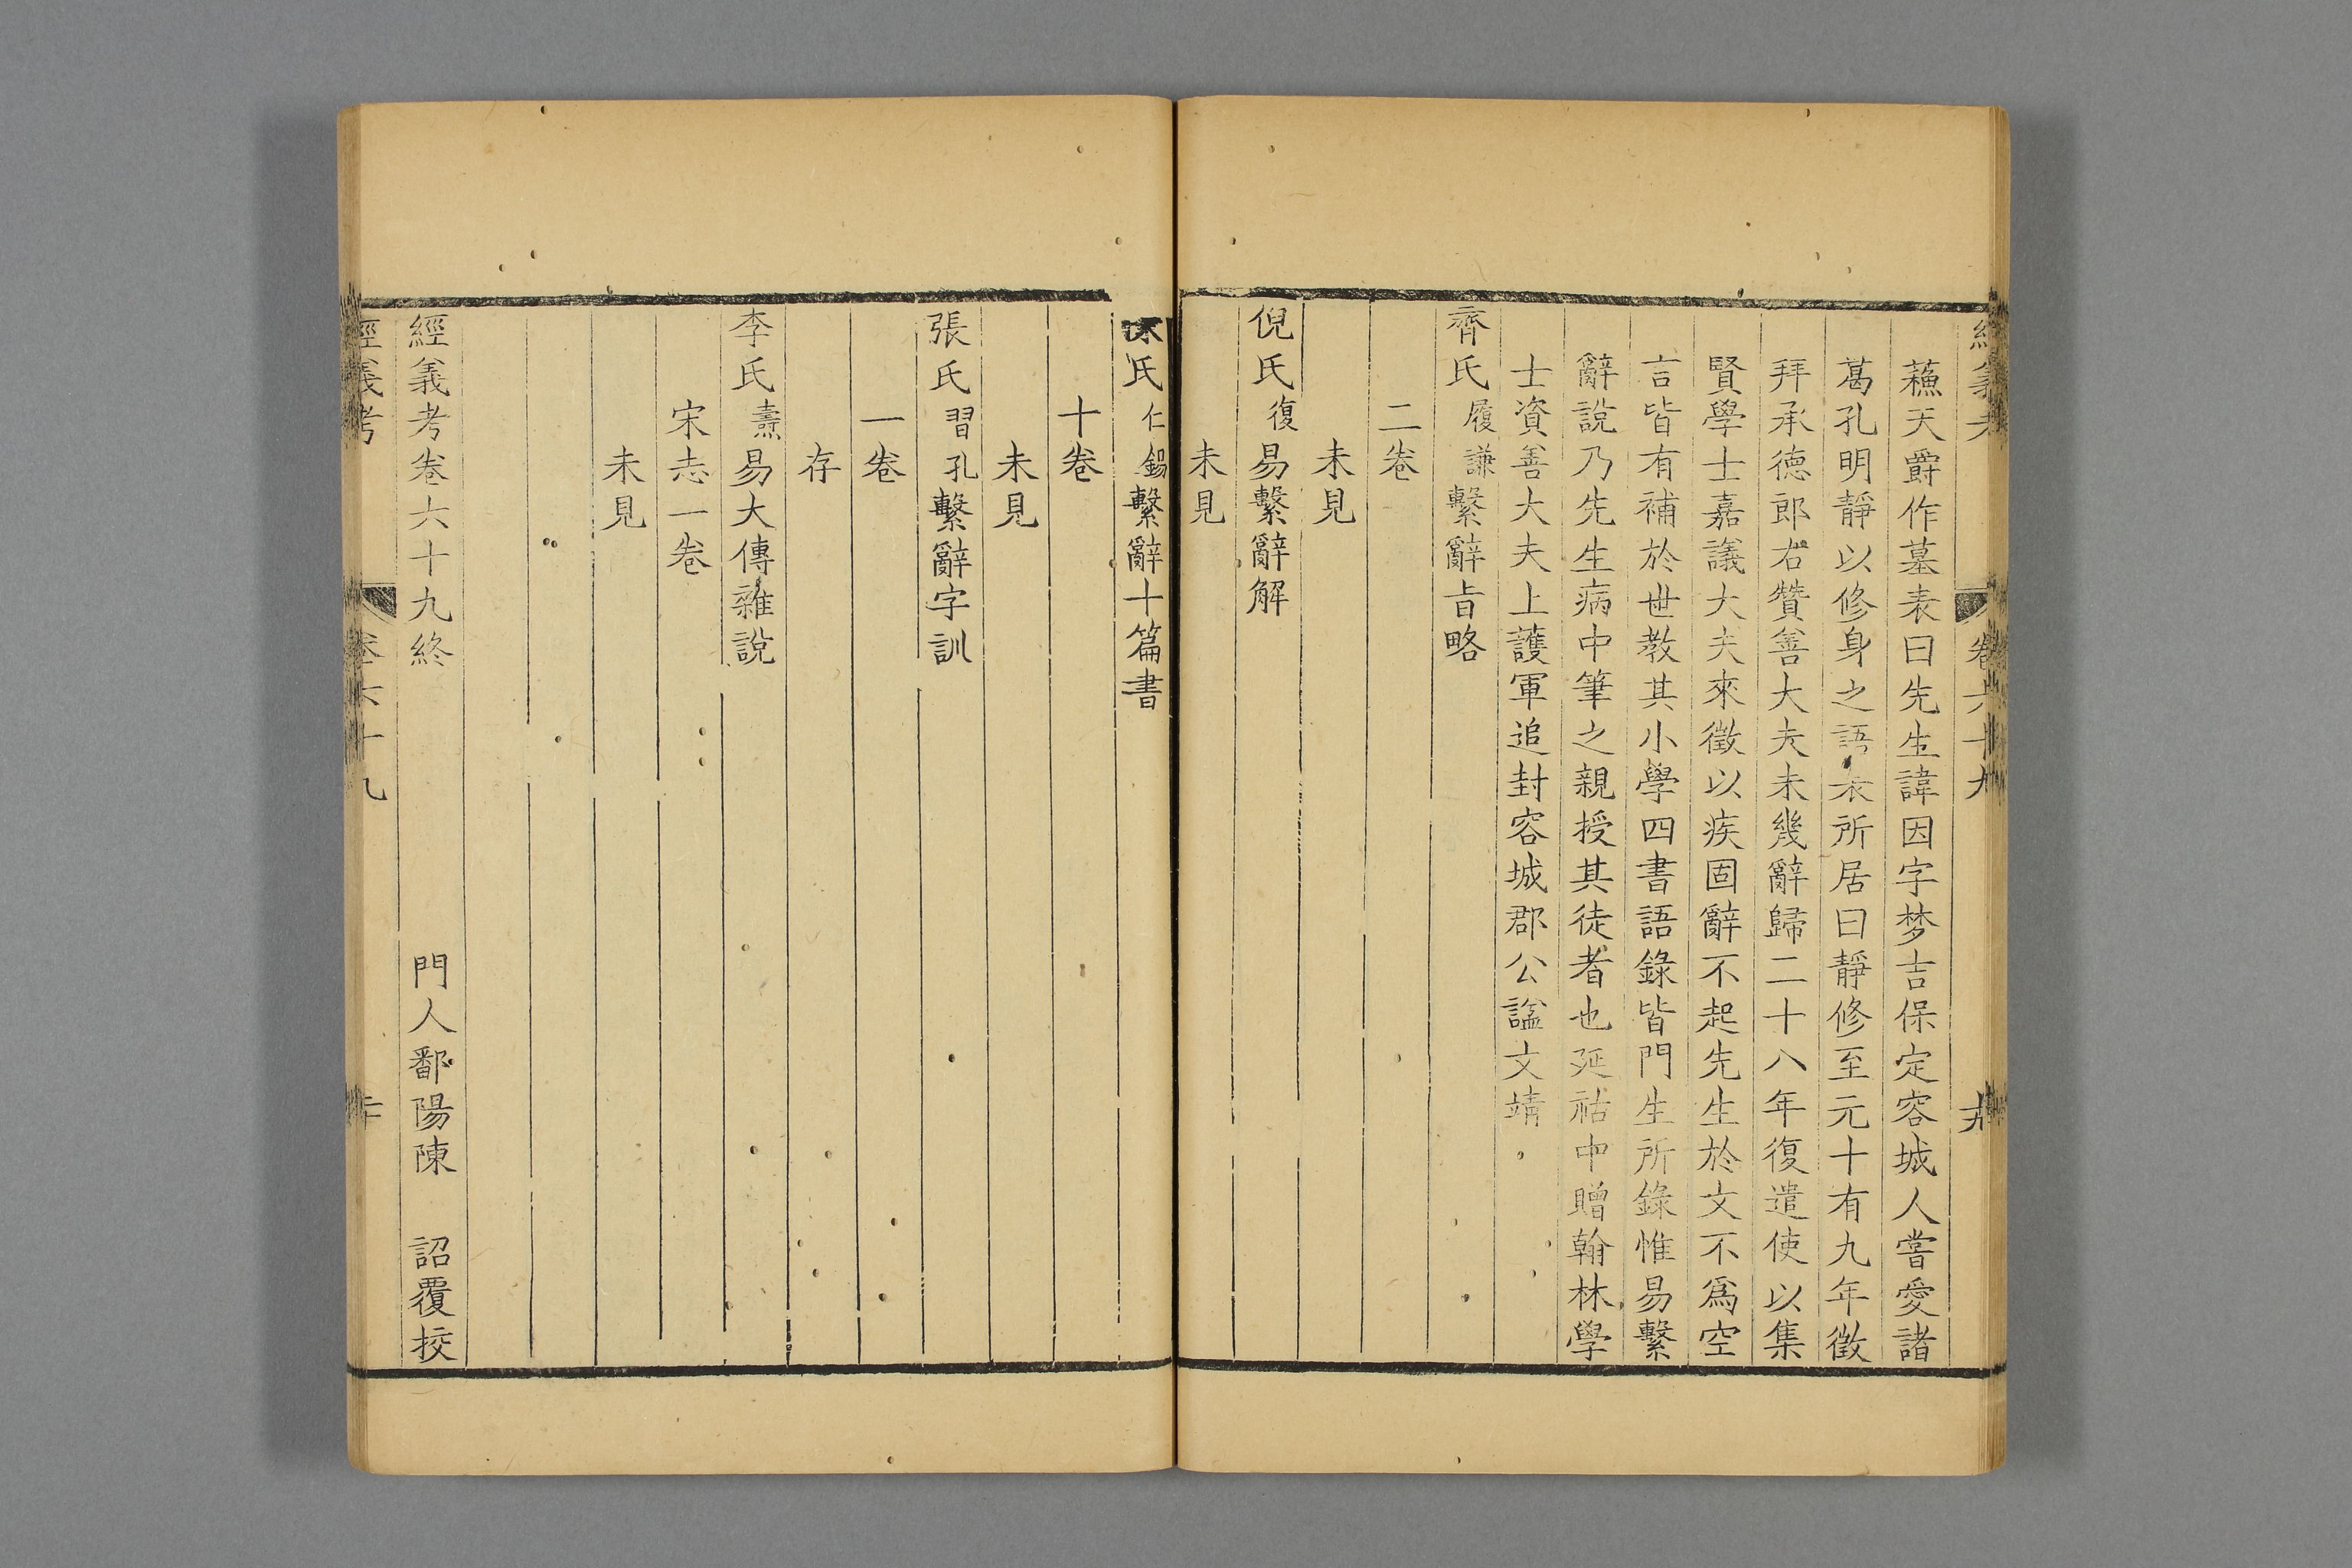 經義考 卷六十九
蘓天爵作墓表曰先生諱因字梦吉保定容城人嘗愛諸
葛孔明靜以修身之語表所居曰靜修至元十有九年徵
拜承德郎右贊善大夫未幾辭歸二十八年復遣使以集
賢學士嘉議大夫來徵以疾固辭不起先生於文不爲空
言皆有補於世教其小學四書語錄皆門生所錄惟易繫
辭說乃先生病中筆之親授其徒者也延祐中贈翰林學
士資善大夫上護軍追封容城郡公諡文靖
齊氏履謙繫辭旨略
二卷
未見
倪氏復易繫辭解
未見
氏仁錫繫辭十篇書
十卷
未見
張氏習孔繫辭字訓
一卷
存
李氏燾易大傳雜說
宋志一卷
未見
經義考卷六十九終 門人鄱陽陳 詔覆挍
經義考 卷六十九